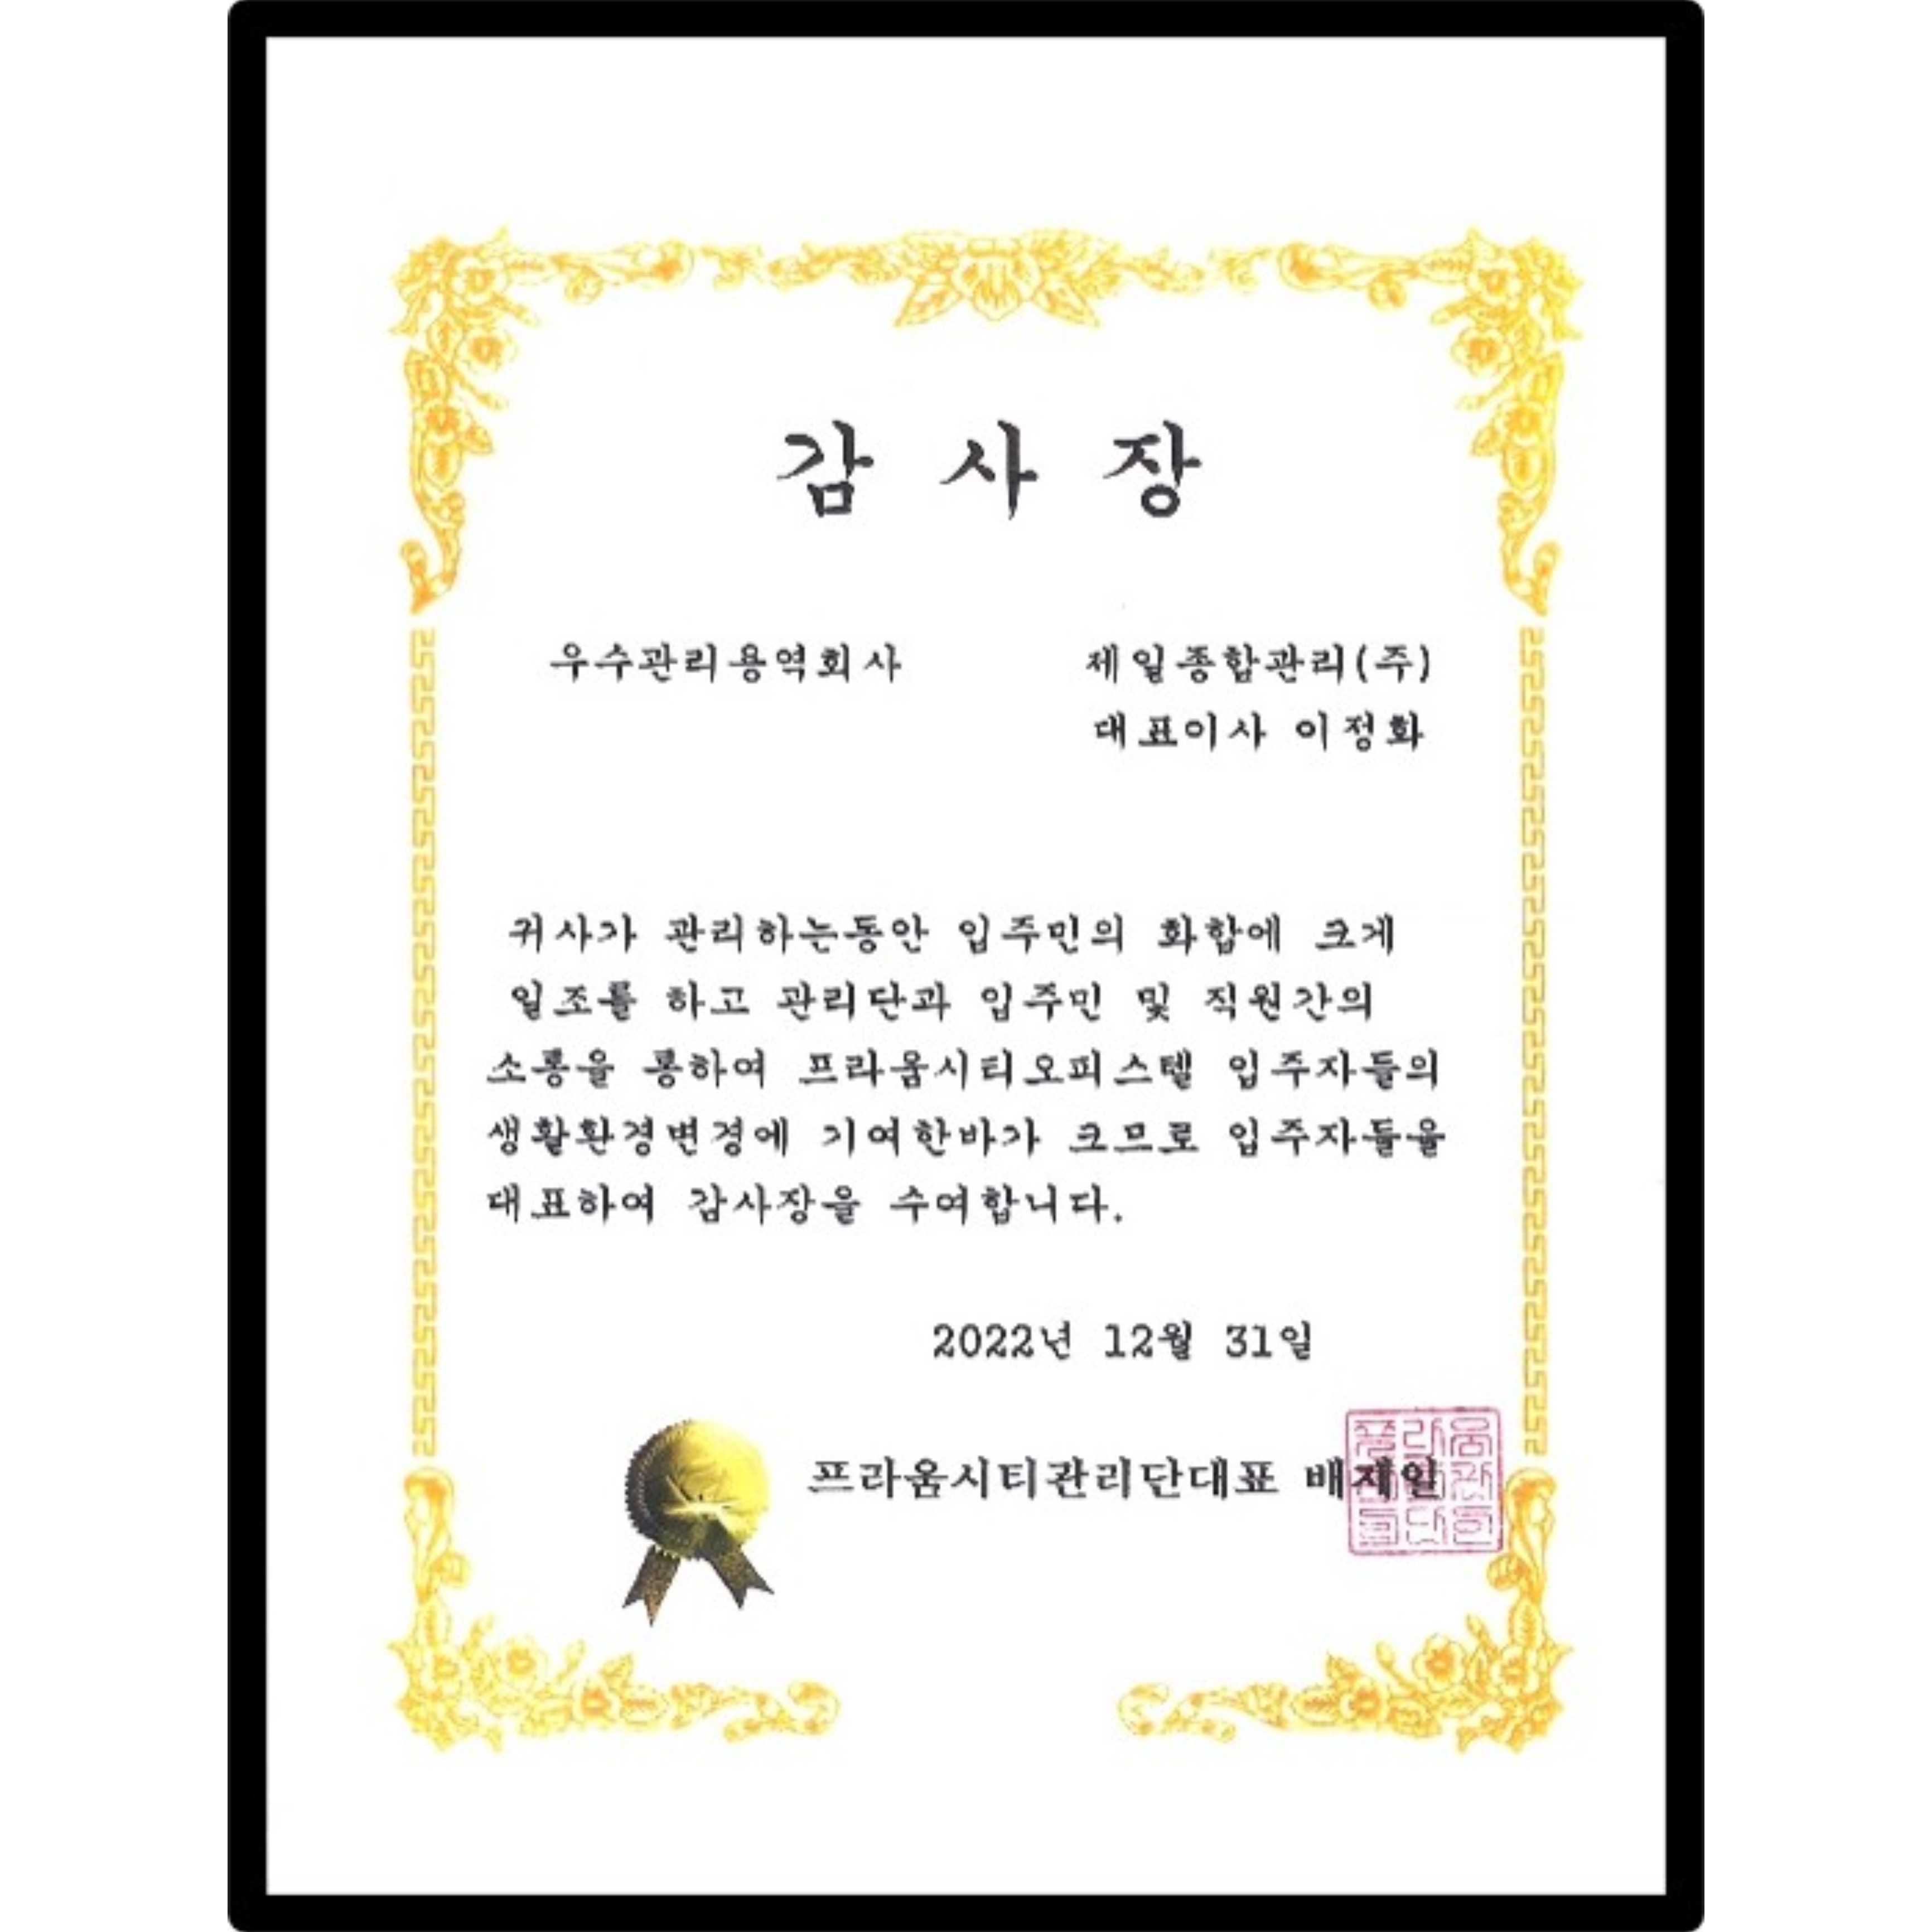 감 사 장
우수관리용역회사 제일종합관리(주)
대표이사 이정화
귀사가 관리하는동안 입주민의 화합에 크게
일조를 하고 관리단과 입주민 및 직원간의
소통을 통하여 프라움시티오피스텔 입주자들의
생활환경변경에 기여한바가 크므로 입주자들을
대표하여 감사장을 수여합니다.
2022년 12월 31일
프라움시티관리단대표 배재일